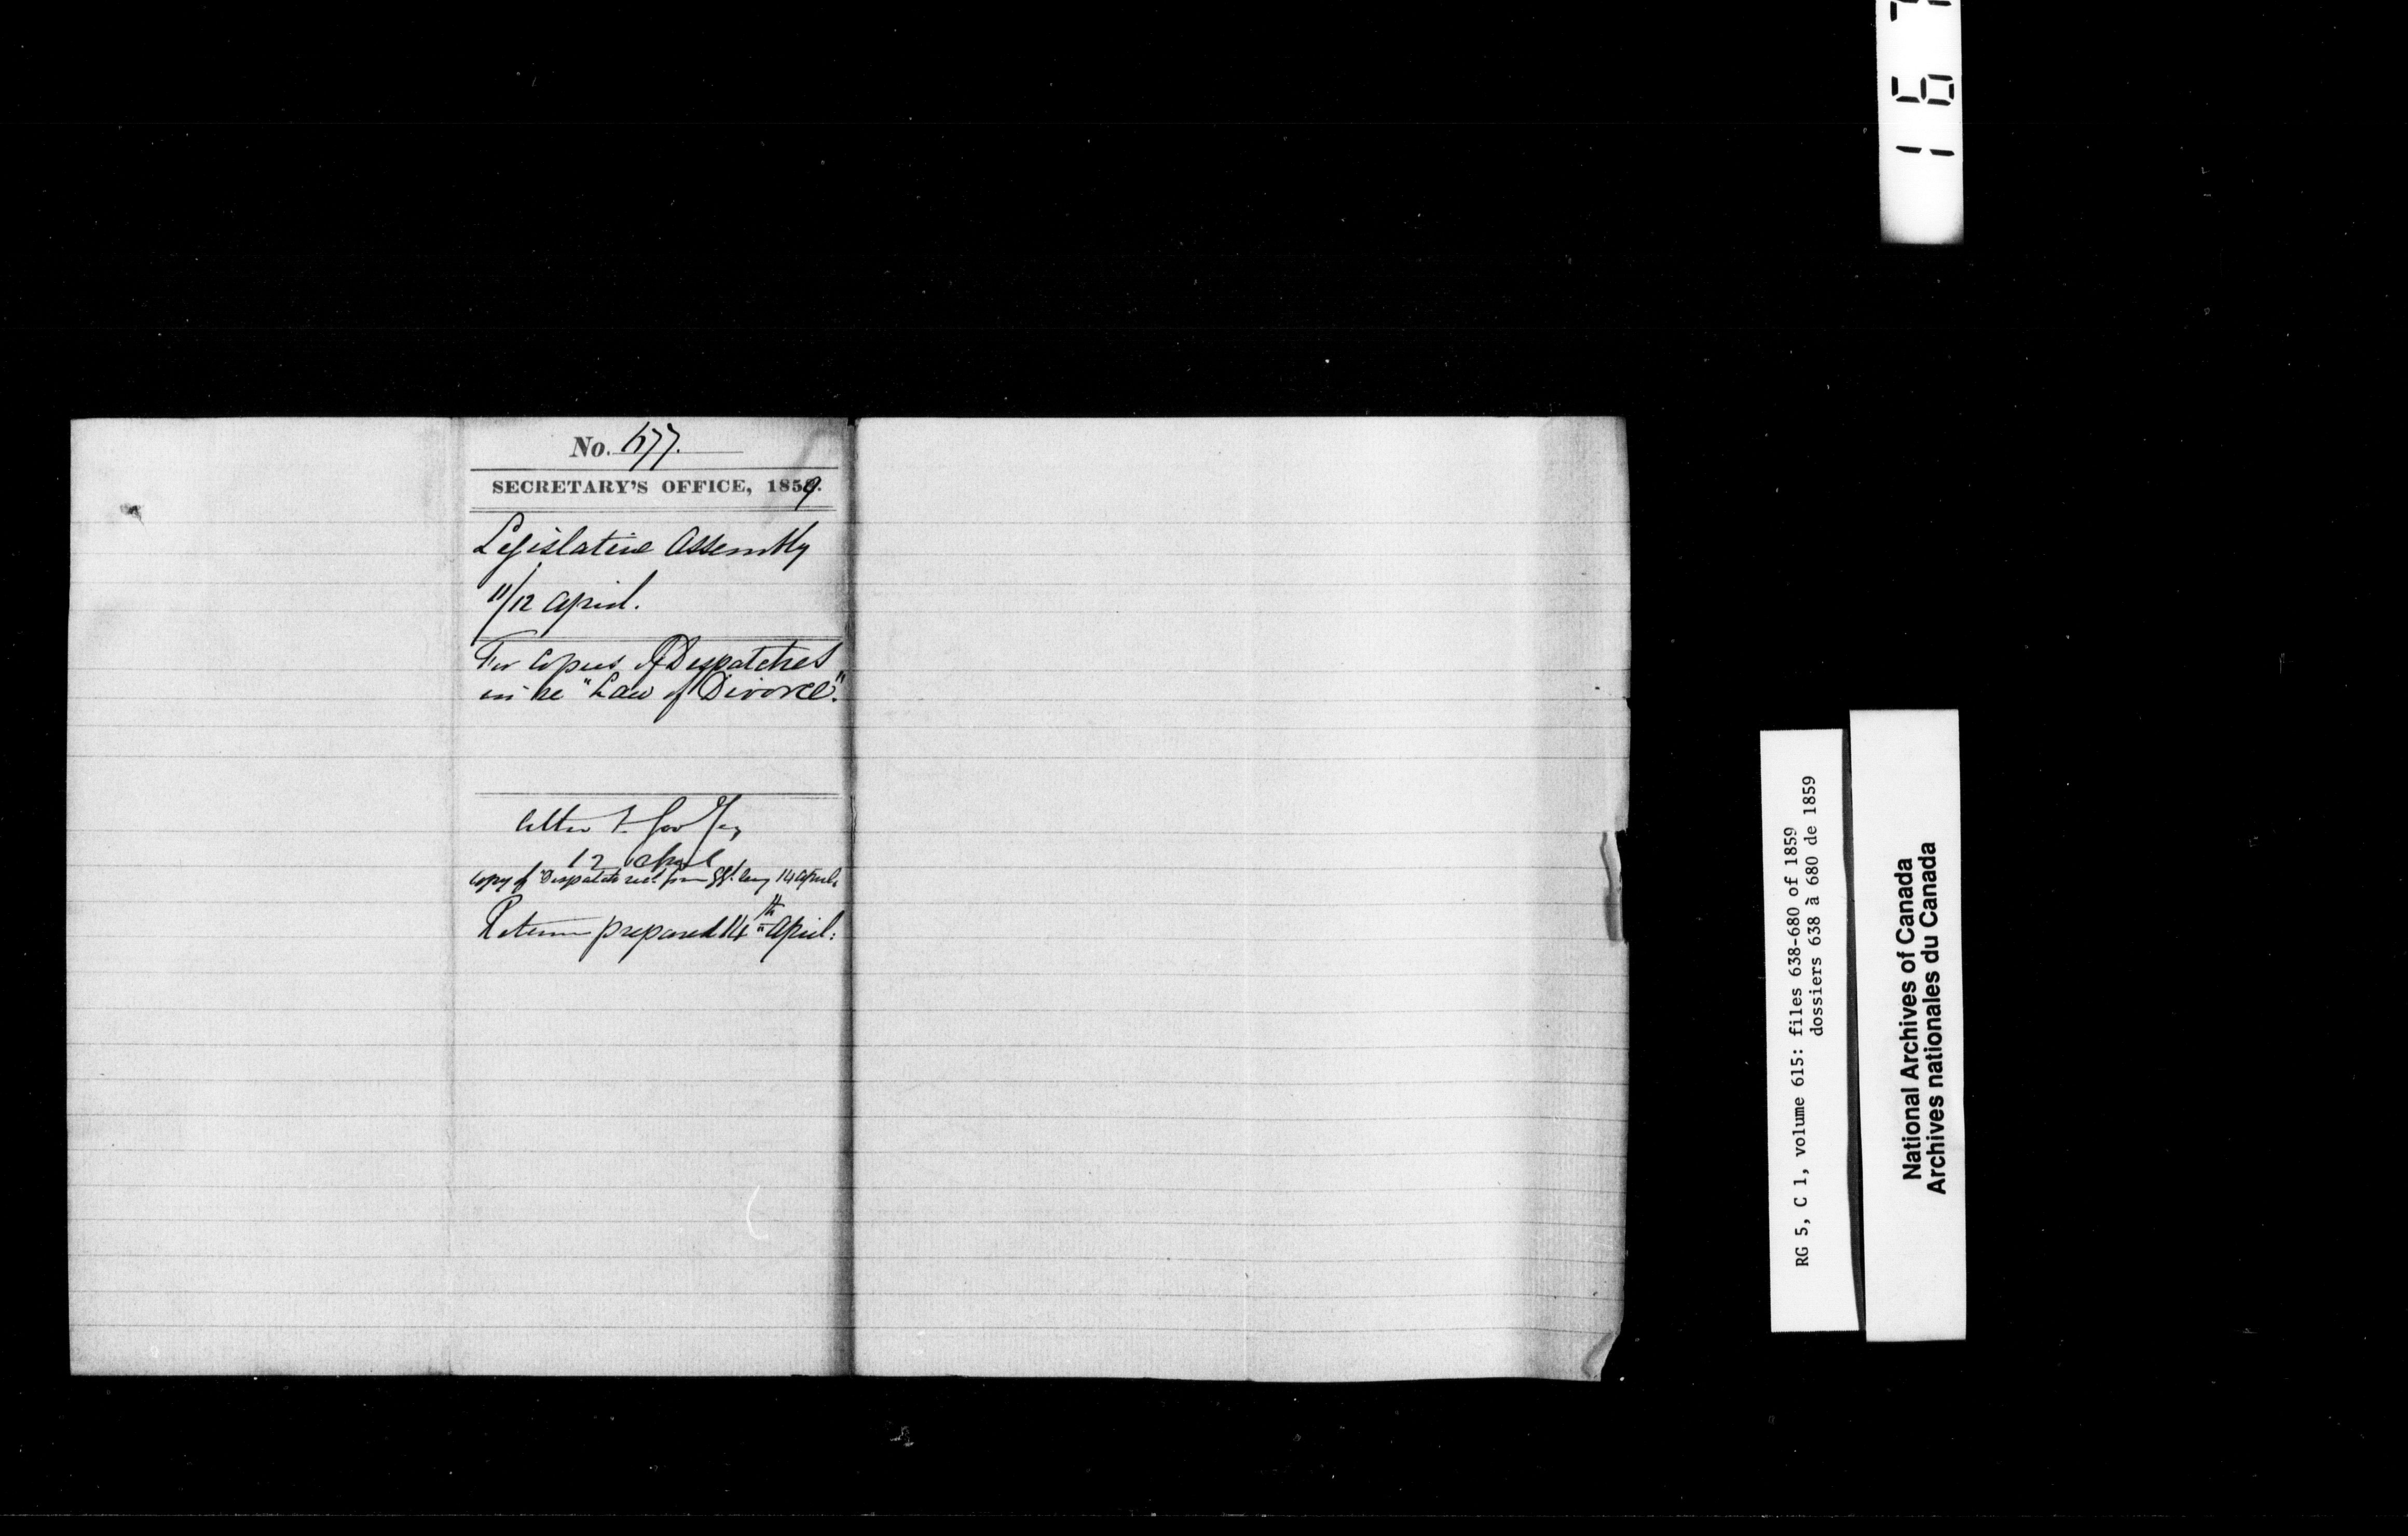 No. 677.
SECRETARY'S OFFICE, 1859.
Legislative Assembly
11/12 April.
For Copies of Despatches
in re "Law of Divorce".
Letter to Gov Secy
12 April
Copy of Despatch recd from Secy 14 April
Return prepared 14th April:
RG 5, C 1, volume 615: files 638-680 of 1859
dossiers 638 à 680 de 1859
National Archives of Canada
Archives nationales du Canada